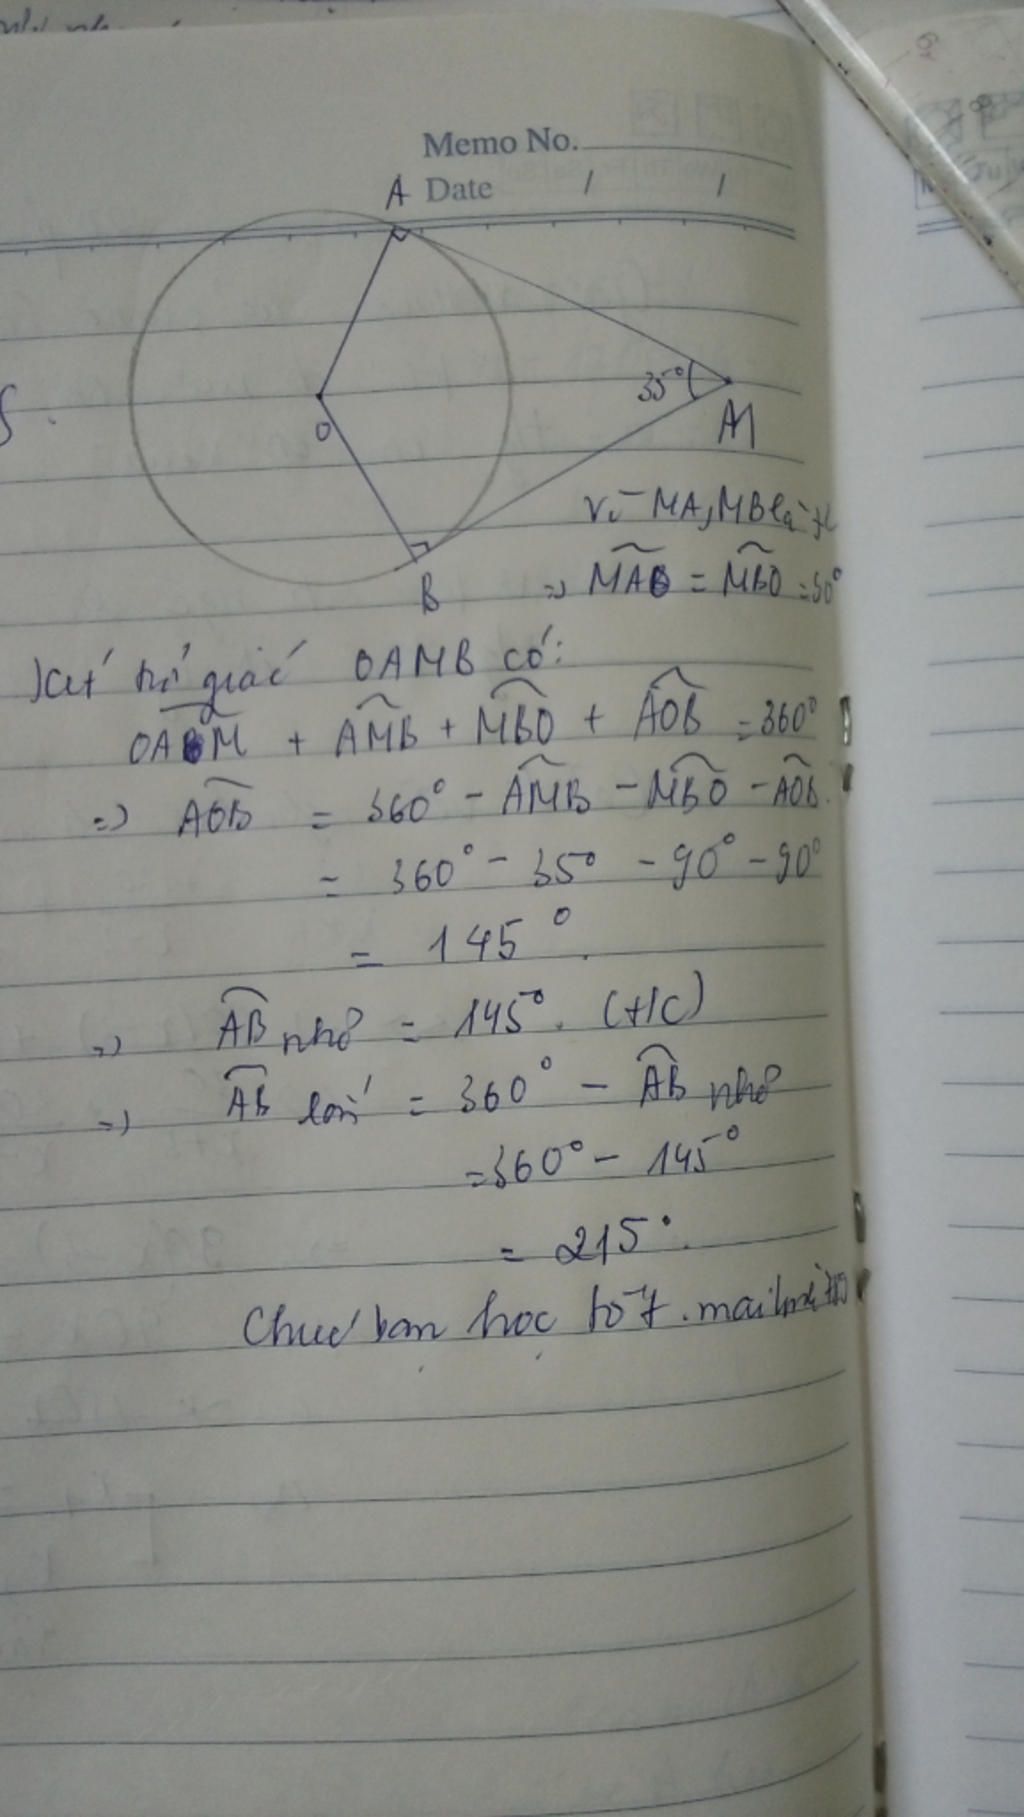 Memo No.
A Date / /
35°
O
M
Vì MA, MB là tt
B => MAO = MBO = 90°
Xét tứ giác OAMB có:
OAM + AMB + MBO + AOB = 360°
=> AOB = 360° - AMB - MBO - AOB.
= 360° - 35° - 90° - 90°
= 145°.
=> AB nhỏ = 145°. (t/c)
=> AB lớn = 360° - AB nhỏ
= 360° - 145°
= 215°.
Chúc bạn học tốt.